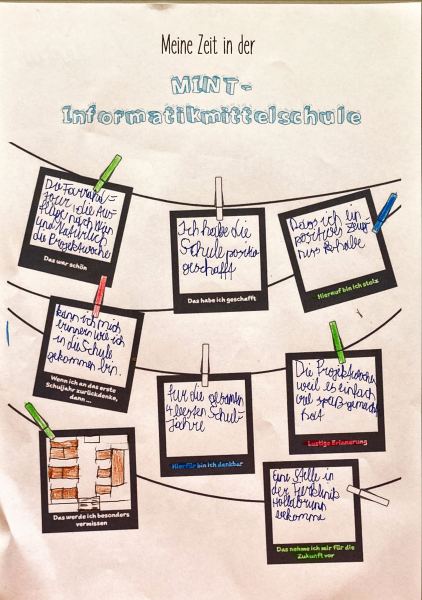 Meine Zeit in der
MINT-
Informatikmittelschule
Die Fahrrad-
tour, die Aus-
flüge nach Wien
und Natürlich
die Projektwoche
Das war schön
Ich habe die
Schule positiv
geschafft
Das habe ich geschafft
Dass ich ein
positives Zeug-
niss habe
Hierauf bin ich stolz
kann ich mich
erinnern wie ich
in die Schule
gekommen bin.
Wenn ich an das erste
Schuljahr zurückdenke,
dann ...
für die
4 Schul-
jahre
Hierfür bin ich dankbar
Die Projektwochen
weil es einfach
viel spaß gemacht
hat
Lustige Erinnerung
Das werde ich besonders
vermissen
Eine Stelle in
der
Hollabrunn
bekomme
Das nehme ich mir für die
Zukunft vor